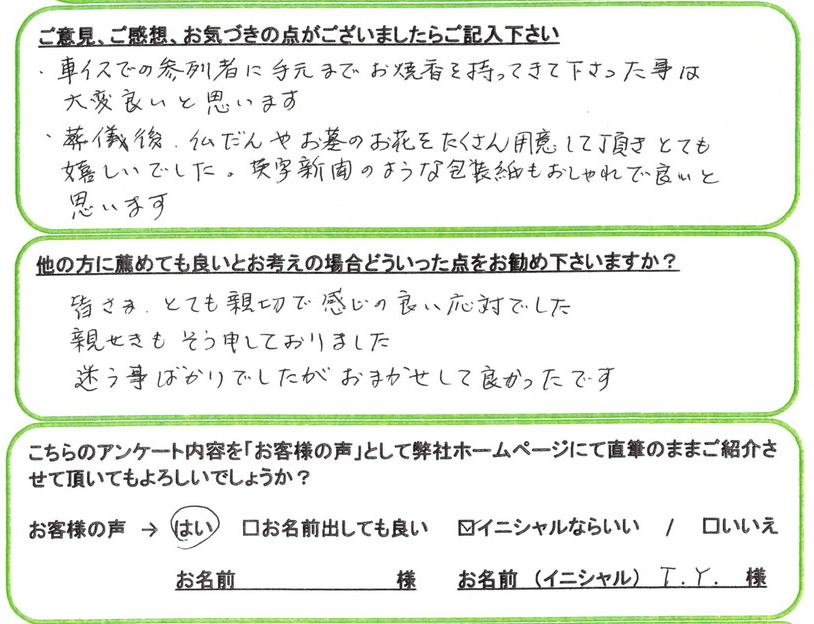 ご意見、ご感想、お気づきの点がございましたらご記入下さい
・車イスでの参列者に手元までお焼香を持ってきて下さった事は
大変良いと思います
・葬儀後、仏だんやお墓のお花をたくさん用意して頂きとても
嬉しいでした。英字新聞のような包装紙もおしゃれで良いと
思います
他の方に薦めても良いとお考えの場合どういった点をお勧め下さいますか？
皆さま、とても親切で感じの良い応対でした
親せきもそう申しておりました
迷う事ばかりでしたがおまかせして良かったです
こちらのアンケート内容を「お客様の声」として弊社ホームページにて直筆のままご紹介さ
せて頂いてもよろしいでしょうか？
お客様の声 → はい □お名前出しても良い ☑イニシャルならいい / □いいえ
お名前 様 お名前（イニシャル） T.Y. 様